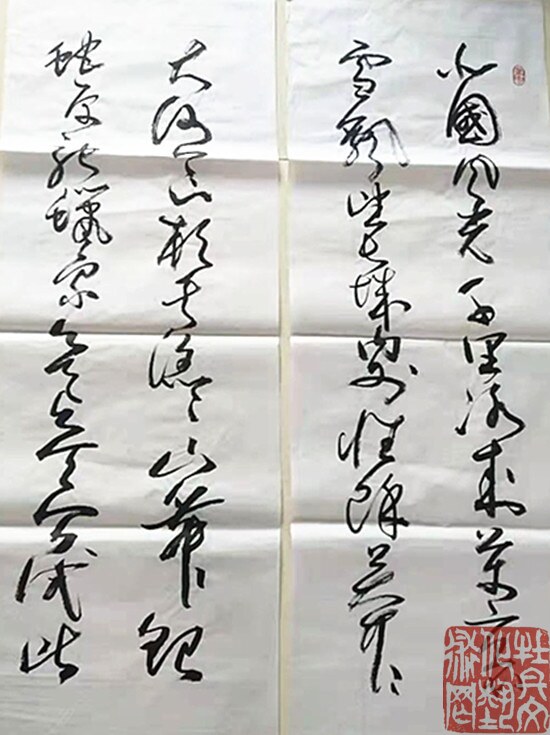 北國风光千里冰封万里
雪飘望长城内外惟馀莽〻
大河上下顿失滔〻山舞银
蛇原驰蠟象欲与天公试比